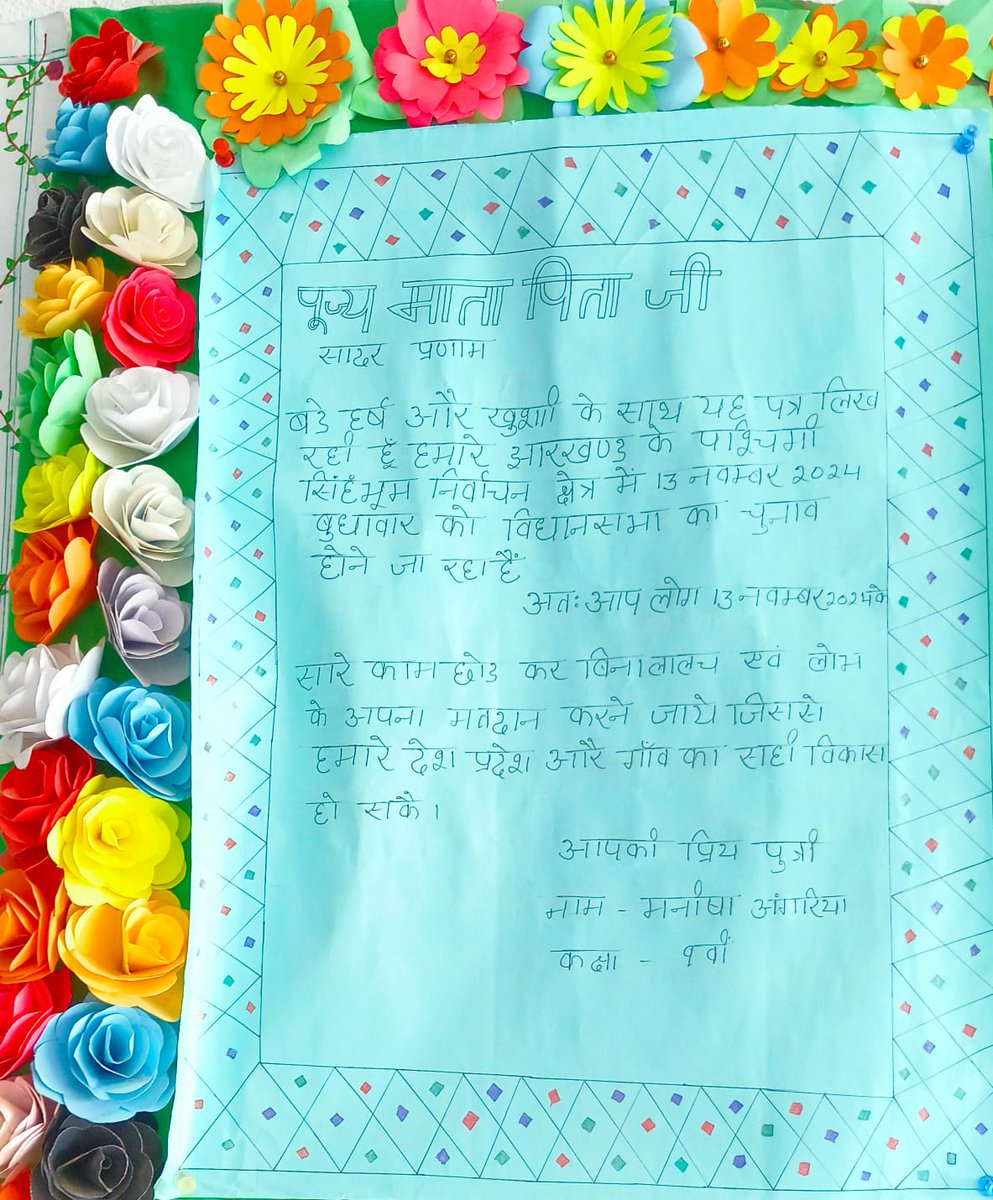 पूज्य माता पिता जी
सादर प्रणाम
बडे हर्ष और खुशी के साथ यह पत्र लिख
रही हूँ हमारे झारखण्ड के पाश्चिमी
सिंहभूम निर्वाचन क्षेत्र में 13 नवम्बर 2024
बुधावार को विधानसभा का चुनाव
होने जा रहा हैं
अतः आप लोग 13 नवम्बर 2024 के
सारे काम छोड कर बिना लालच एवं लोभ
के अपना मतदान करने जाये जिससे
हमारे देश प्रदेश और गाँव का सही विकास
हो सके।
आपकी प्रिय पुत्री
नाम - मनीषा अंगारिया
कक्षा - 9वीं